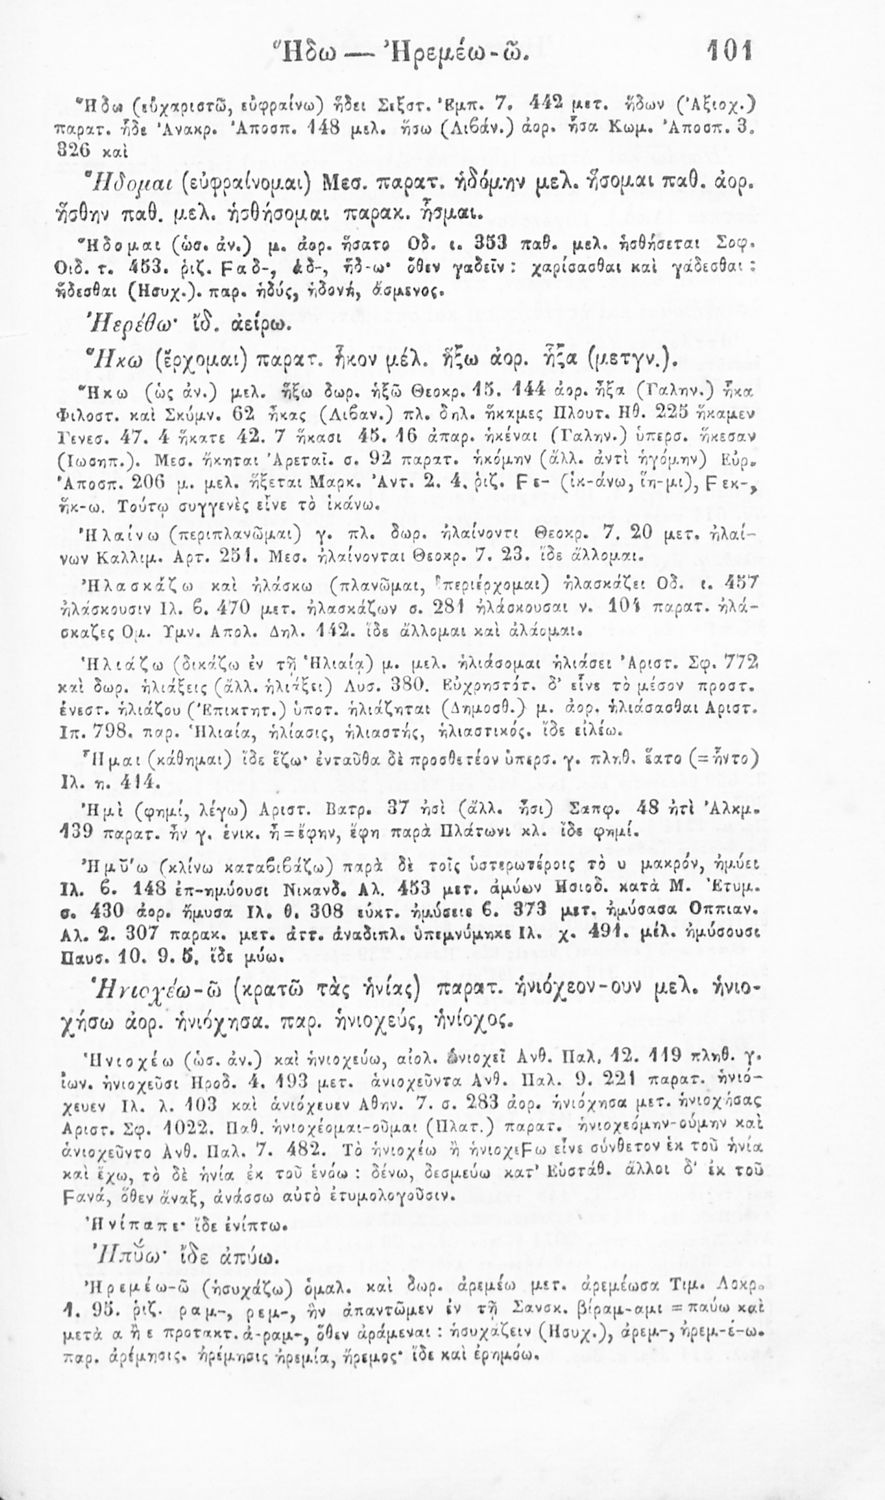 Ἥδω — Ἠρεμέω-ῶ. 101
Ἥδω (εὐχαριστῶ, εὐφραίνω) ἥδει Σεξστ. Ἐμπ. 7. 442 μετ. ἥδων (Ἀξιοχ.)
παρατ. ἧδε Ἀνακρ. Ἀποσπ. 148 μελ. ἥσω (Λιβάν.) ἀορ. ἧσα Κωμ. Ἀποσπ. 3.
326 καὶ
Ἥδομαι (εὐφραίνομαι) Μεσ. παρατ. ἡδόμην μελ. ἥσομαι παθ. ἀορ.
ἥσθην παθ. μελ. ἡσθήσομαι παρακ. ἧσμαι.
Ἥδομαι (ὡσ. ἀν.) μ. ἀορ. ἥσατο Οδ. ι. 353 παθ. μελ. ἡσθήσεται Σοφ.
Οιδ. τ. 453. ῥιζ. Fαδ-, ἁδ-, ἥδ-ω· ὅθεν γαδεῖν : χαρίσασθαι καὶ γάδεσθαι :
ἥδεσθαι (Ησυχ.). παρ. ἡδύς, ἡδονή, ἄσμενος.
Ἠερέθω· ἴδ. ἀείρω.
Ἥκω (ἔρχομαι) παρατ. ἧκον μέλ. ἥξω ἀορ. ἧξα (μετγν.).
Ἥκω (ὡς ἀν.) μελ. ἥξω δωρ. ἡξῶ Θεοκρ. 15. 144 ἀορ. ἧξα (Γαλην.) ἧκα
Φιλοστ. καὶ Σκύμν. 62 ἧκας (Λιβαν.) πλ. δηλ. ἥκαμες Πλουτ. Ηθ. 225 ἥκαμεν
Γενεσ. 47. 4 ἥκατε 42. 7 ἥκασι 45. 16 ἀπαρ. ἡκέναι (Γαλην.) ὑπερσ. ἥκεσαν
(Ιωσηπ.). Μεσ. ἥκηται Ἀρεταῖ. σ. 92 παρατ. ἡκόμην (ἄλλ. ἀντὶ ἡγόμην) Εὐρ.
Ἀποσπ. 206 μ. μελ. ἥξεται Μαρκ. Ἀντ. 2. 4. ῥιζ. Fε- (ἱκ-άνω, ἵη-μι), Fεκ-,
ἥκ-ω. Τούτῳ συγγενὲς εἶνε τὸ ἱκάνω.
Ἠλαίνω (περιπλανῶμαι) γ. πλ. δωρ. ἠλαίνοντι Θεοκρ. 7. 20 μετ. ἠλαί-
νων Καλλιμ. Αρτ. 251. Μεσ. ἠλαίνονται Θεοκρ. 7. 23. ἴδε ἄλλομαι.
Ἠλασκάζω καὶ ἠλάσκω (πλανῶμαι, περιέρχομαι) ἠλασκάζει Οδ. ι. 457
ἠλάσκουσιν Ιλ. β. 470 μετ. ἠλασκάζων σ. 281 ἠλάσκουσαι ν. 104 παρατ. ἠλά-
σκαζες Ομ. Υμν. Απολ. Δηλ. 142. ἴδε ἄλλομαι καὶ ἀλάομαι.
Ἡλιάζω (δικάζω ἐν τῇ Ἡλιαίᾳ) μ. μελ. ἡλιάσομαι ἡλιάσει Ἀριστ. Σφ. 772
καὶ δωρ. ἡλιάξεις (ἄλλ. ἡλιάξει) Λυσ. 380. Εὐχρηστότ. δ' εἶνε τὸ μέσον προστ.
ἐνεστ. ἡλιάζου (Ἐπικτητ.) ὑποτ. ἡλιάζηται (Δημοσθ.) μ. ἀορ. ἡλιάσασθαι Αριστ.
Ιπ. 798. παρ. Ἡλιαία, ἡλίασις, ἡλιαστής, ἡλιαστικός. ἴδε εἰλέω.
Ἧμαι (κάθημαι) ἴδε ἕζω· ἐνταῦθα δὲ προσθετέον ὑπερσ. γ. πληθ. ἕατο (=ἧντο)
Ιλ. η. 414.
Ἠμὶ (φημί, λέγω) Αριστ. Βατρ. 37 ἠσὶ (ἄλλ. ἦσι) Σαπφ. 48 ἠτὶ Ἀλκμ.
139 παρατ. ἦν γ. ἑνικ. ἦ=ἔφην, ἔφη παρὰ Πλάτωνι κλ. ἴδε φημί.
Ἠμῡ́ω (κλίνω καταβιβάζω) παρὰ δὲ τοῖς ὑστερωτέροις τὸ υ μακρόν, ἠμύει
Ιλ. β. 148 ἐπ-ημύουσι Νικανδ. Αλ. 453 μετ. ἀμύων Ησιοδ. κατὰ Μ. Ἐτυμ.
σ. 430 ἀορ. ἤμυσα Ιλ. θ. 308 εὐκτ. ἠμύσειε β. 373 μετ. ἠμύσασα Οππιαν.
Αλ. 2. 307 παρακ. μετ. ἀττ. ἀναδιπλ. ὑπεμνύμηκε Ιλ. χ. 491. μέλ. ἠμύσουσι
Παυσ. 10. 9. 5. ἴδε μύω.
Ἡνιοχέω-ῶ (κρατῶ τὰς ἡνίας) παρατ. ἡνιόχεον-ουν μελ. ἡνιο-
χήσω ἀορ. ἡνιόχησα. παρ. ἡνιοχεύς, ἡνίοχος.
Ἡνιοχέω (ὡσ. ἀν.) καὶ ἡνιοχεύω, αἰολ. ἁνιοχεῖ Ανθ. Παλ. 12. 119 πληθ. γ.
ἰων. ἡνιοχεῦσι Ηροδ. 4. 193 μετ. ἁνιοχεῦντα Ανθ. Παλ. 9. 221 παρατ. ἡνιό-
χευεν Ιλ. λ. 103 καὶ ἁνιόχευεν Αθην. 7. σ. 283 ἀορ. ἡνιόχησα μετ. ἡνιοχήσας
Αριστ. Σφ. 1022. Παθ. ἡνιοχέομαι-οῦμαι (Πλατ.) παρατ. ἡνιοχεόμην-ούμην καὶ
ἁνιοχεῦντο Ανθ. Παλ. 7. 482. Τὸ ἡνιοχέω ἢ ἡνιοχεFω εἶνε σύνθετον ἐκ τοῦ ἡνία
καὶ ἔχω, τὸ δὲ ἡνία ἐκ τοῦ ἑνόω : δένω, δεσμεύω κατ' Εὐστάθ. ἄλλοι δ' ἐκ τοῦ
Fανά, ὅθεν ἄναξ, ἀνάσσω αὐτὸ ἐτυμολογοῦσιν.
Ἠνίπαπε· ἴδε ἐνίπτω.
Ἠπῡ́ω· ἴδε ἀπύω.
Ἠρεμέω-ῶ (ἡσυχάζω) ὁμαλ. καὶ δωρ. ἀρεμέω μετ. ἀρεμέωσα Τιμ. Λοκρ.
1. 95. ῥιζ. ραμ-, ρεμ-, ἣν ἀπαντῶμεν ἐν τῇ Σανσκ. βίραμ-αμι = παύω καὶ
μετὰ α ἢ ε προτακτ. ἀ-ραμ-, ὅθεν ἀράμεναι : ἡσυχάζειν (Ησυχ.), ἀρεμ-, ἠρεμ-έ-ω.
παρ. ἀρέμησις. ἠρέμησις ἠρεμία, ἤρεμος· ἴδε καὶ ἐρημόω.